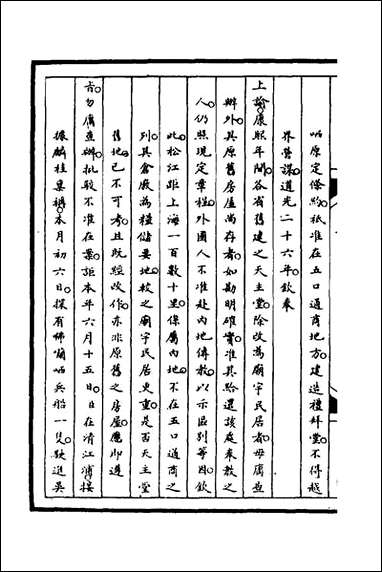 㕶原定條約祇准在五口通商地方建造禮拜堂不得越
界營謀道光二十六年欽奉
上諭康熙年間各省舊建之天主堂除改為廟宇民居者毋庸查
辦外其原舊房屋尚存者如勘明確實准其給還該處奉教之
人仍照現定章程外國人不准赴內地傳教以示區別等因欽
此松江距上海一百數十里係屬內地不在五口通商之
列其倉廒為糧儲要地較之廟宇民居更重是否天主堂
舊地已不可考且既經改作亦非原舊之房屋應即遵
旨勿庸查辦批駁不准在案詎本年六月十五日日在清江浦接
據麟桂吳稱本月初六日探有㗏囒哂兵船一隻駛進吳